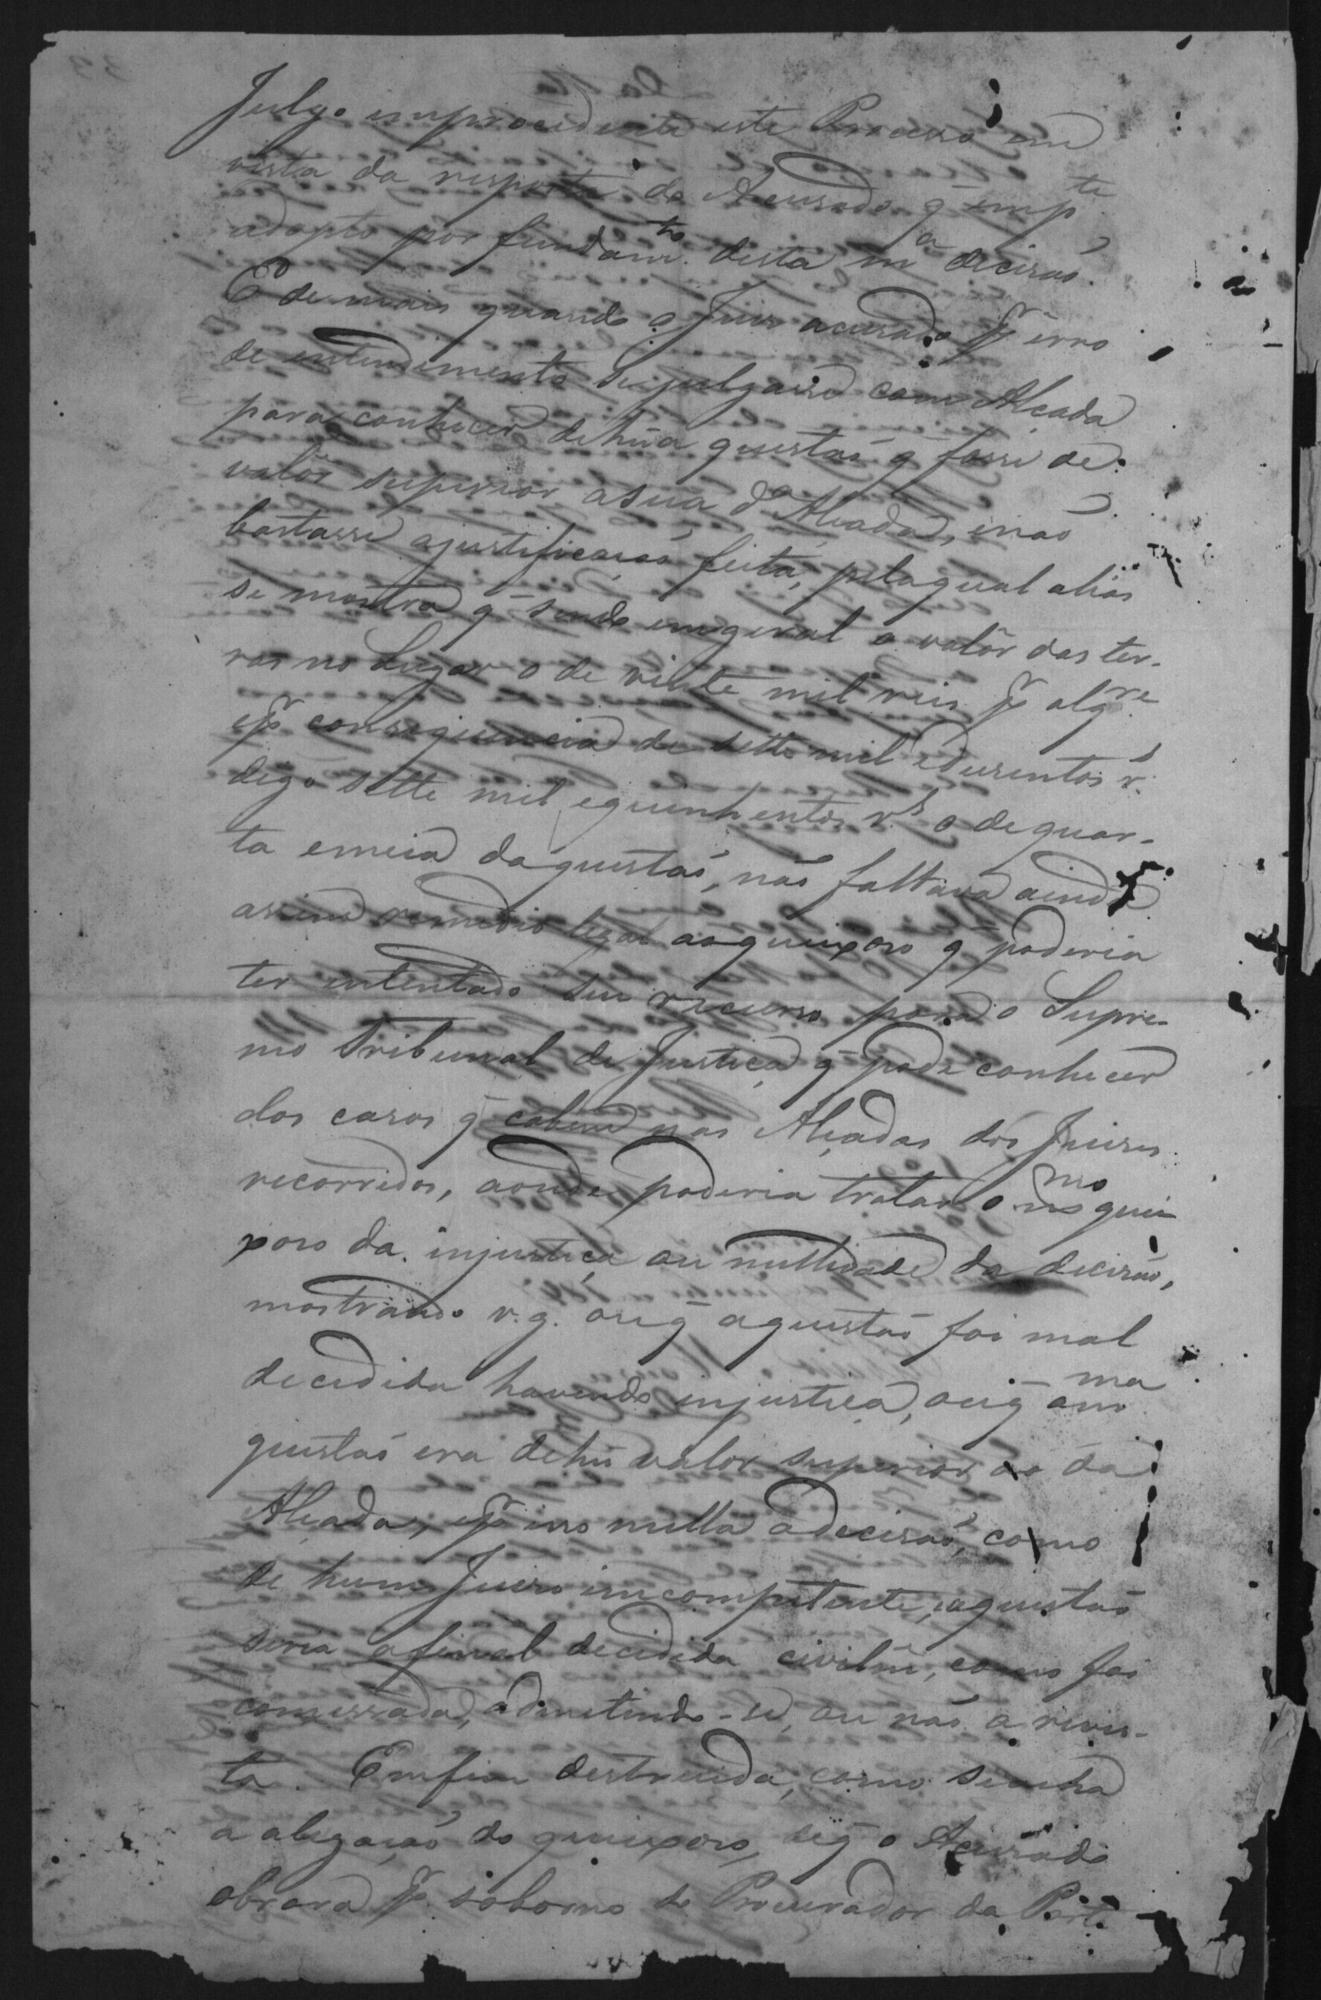 Julgo improcedente este Processo em
vista da resposta do Acusado q̃ emp.te
adopto por fundam.to desta m.a decisaõ.
E demais quando o Juiz acusado p.r êrro
de entendimento se julgasse com Alçada
para conhecer de hũa questaõ q̃ fosse de
valôr superior a sua d.a Alçada, e naõ
bastasse a justificaçaõ feita, pela qual aliás
se mostra q̃ sendo em geral o valôr das ter-
ras no Lugar o de vinte mil reis p.r alq.re
e p.r consequencia de sette mil e duzentos r.s
digo sette mil e quinhentos r.s o de quar-
ta e meia da questaõ, naõ faltava ainda
assim remedio legal ao queixoso q̃ poderia
ter intentado seu recurso para o Supre-
mo Tribunal de Justiça q̃ pode conhecer
dos casos q̃ cabem nas Alçadas dos Juizes
recorridos, aonde poderia tratar o m.mo quei-
xoso da injustiça ou nullidade da decisaõ,
mostrando v.g. ou q̃ a questaõ foi mal
decedida havendo injustiça, ou q̃ a m.ma
questaõ era de hũ valor superior ao da
Alçada, e p.r isso nulla a decisaõ, como
de hum Juizo imcompetente, e a questaõ
seria afinal decidida civilm.e, como foi
comessada, admetindo-se, ou naõ a revis-
ta. Emfim destruida, como se acha
a alegaçaõ do queixoso, de q̃ o Acusado
obrara p.r soborno do Procurador da Parte